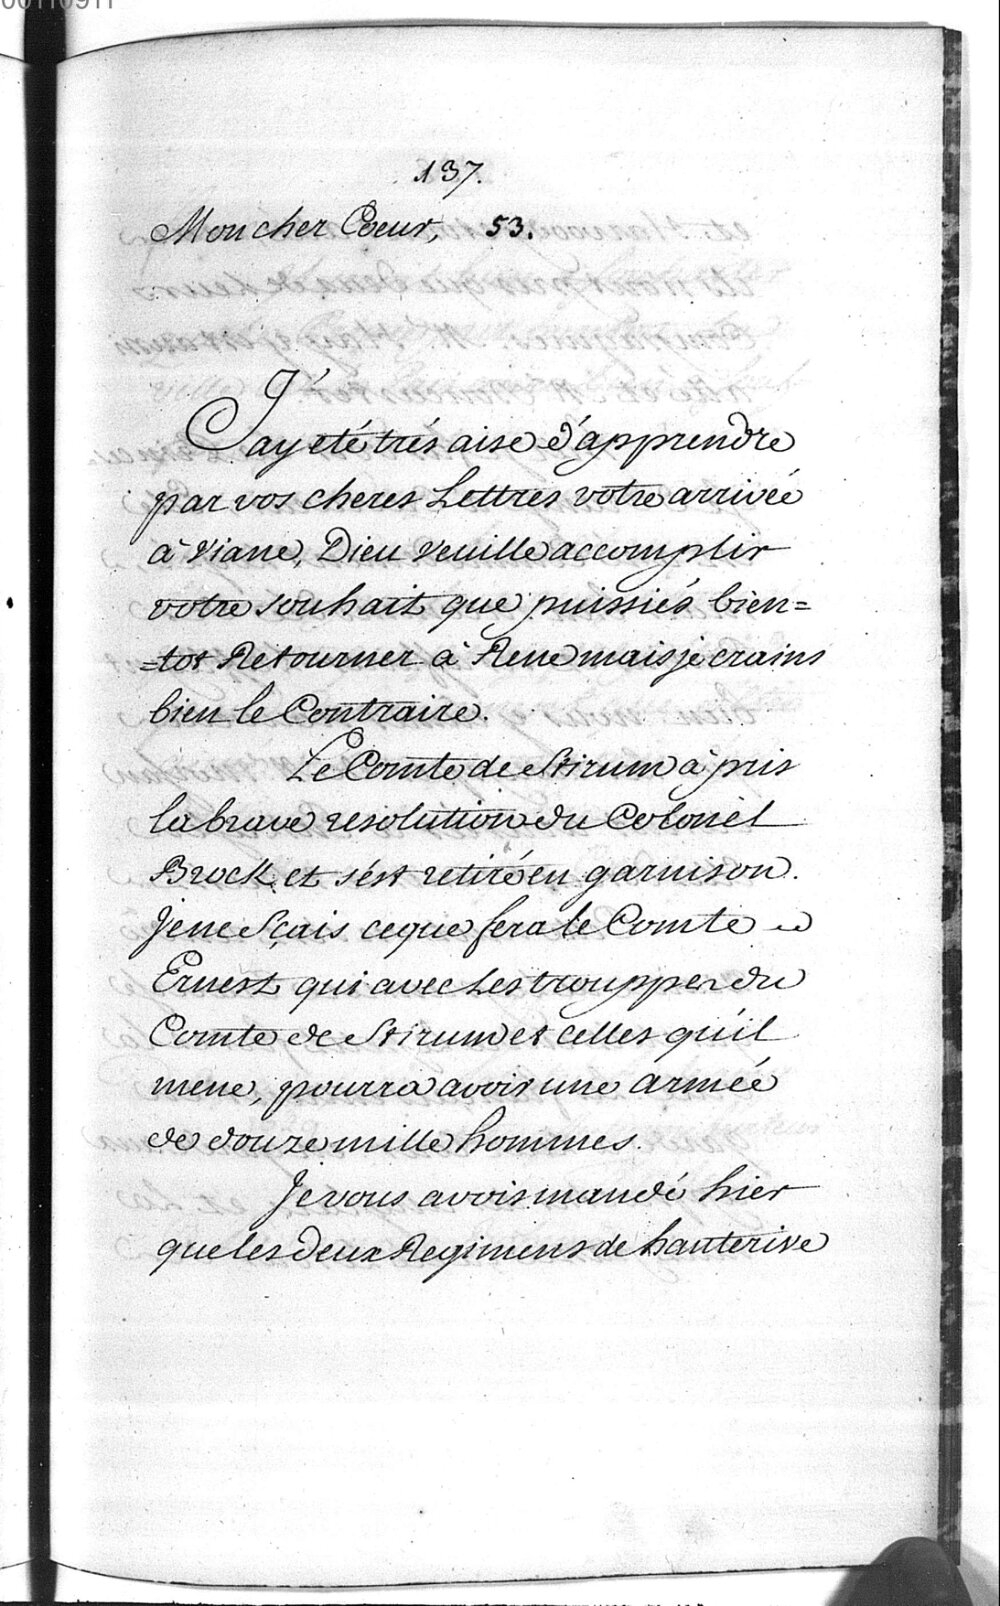 00110911
137.
Mon cher Coeur, 53.
J'ay eté trés aise d'apprendre
par vos cheres Lettres votre arrivée
à Viane, Dieu veuille accomplir
votre souhait que puissiés bien=
=tot Retourner à Rene mais je crains
bien le Contraire.
Le Comte de Stirum à pris
la brave resolution du Colonel
Brock et s'ést retiré en garnison.
Je ne sçais ce que fera le Comte
Ernest qui avec les trouppes du
Comte de Stirum et celles qu'il
mene, pourra avoir une armée
de douze mille hommes.
Je vous avois mandé hier
que les deux Regimens de hauterive